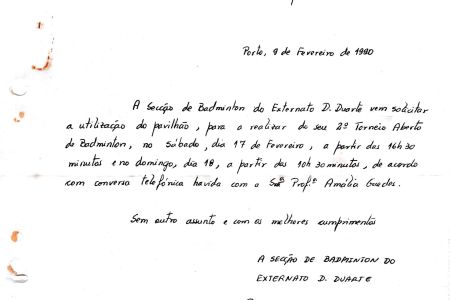 Porto, 9 de Fevereiro de 1990
A Secção de Badminton do Externato D. Duarte vem solicitar
a utilização do pavilhão, para a realizar do seu 2º Torneio Aberto
de Badminton, no sábado, dia 17 de Fevereiro, a partir das 14h30
minutos e no domingo, dia 18, a partir das 10h30 minutos, de acordo
com conversa telefónica havida com a Srª Profª Amália Guedes.
Sem outro assunto e com os melhores cumprimentos
A SECÇÃO DE BADMINTON DO
EXTERNATO D. DUARTE